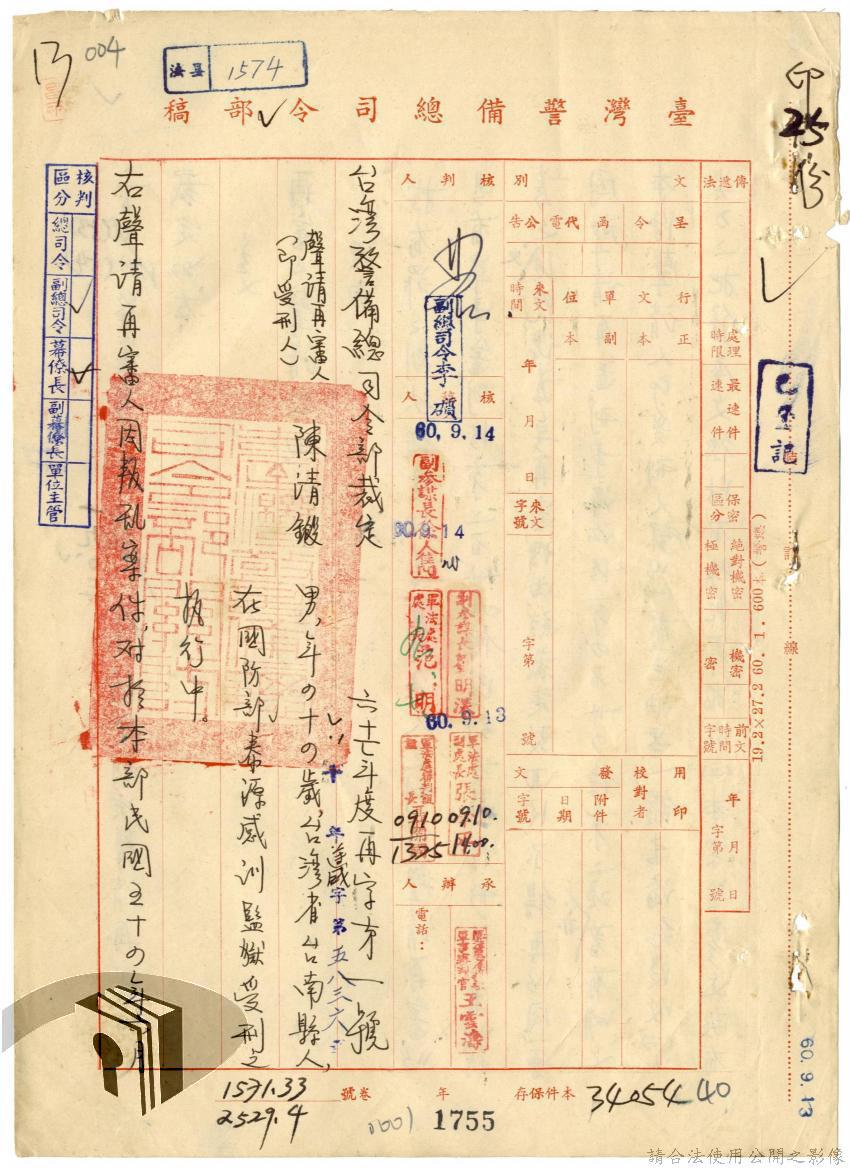 004
法呈 1574
臺灣警備總司令部稿
印25份
傳遞法
文別
呈令函代電公告
核判人
處理時限
最速件
速件
行文單位
正本
副本
來文時間
年月日
來文字號
字第號
保密區分
絕對機密
極機密
機密
密
前文時間字號
年月日
字第號
用印
校對者
附件
日期
發文字號
副總司令李
60.9.14
60.9.14
60.9.13
0910
1325
0910.
1400.
承辦人
電話：
已登記
裝訂線
19.2×27.2 60.1.600
60.9.13
核判區分
總司令
副總司令
幕僚長
副幕僚長
單位主管
台湾警備總司令部裁定
六十年度再字第一號
年 字第五八三六
聲請再審人
（即受刑人）
陳清鍛
男，年四十四歲，台湾省台南縣人，
在國防部泰源感訓監獄受刑之
执行中。
右聲請再審人因叛乱案件，对於本部民國五十四年 月
1571.33
2529.4
本件保存
年
卷號
34054 40
0001 1755
請合法使用公開之影像